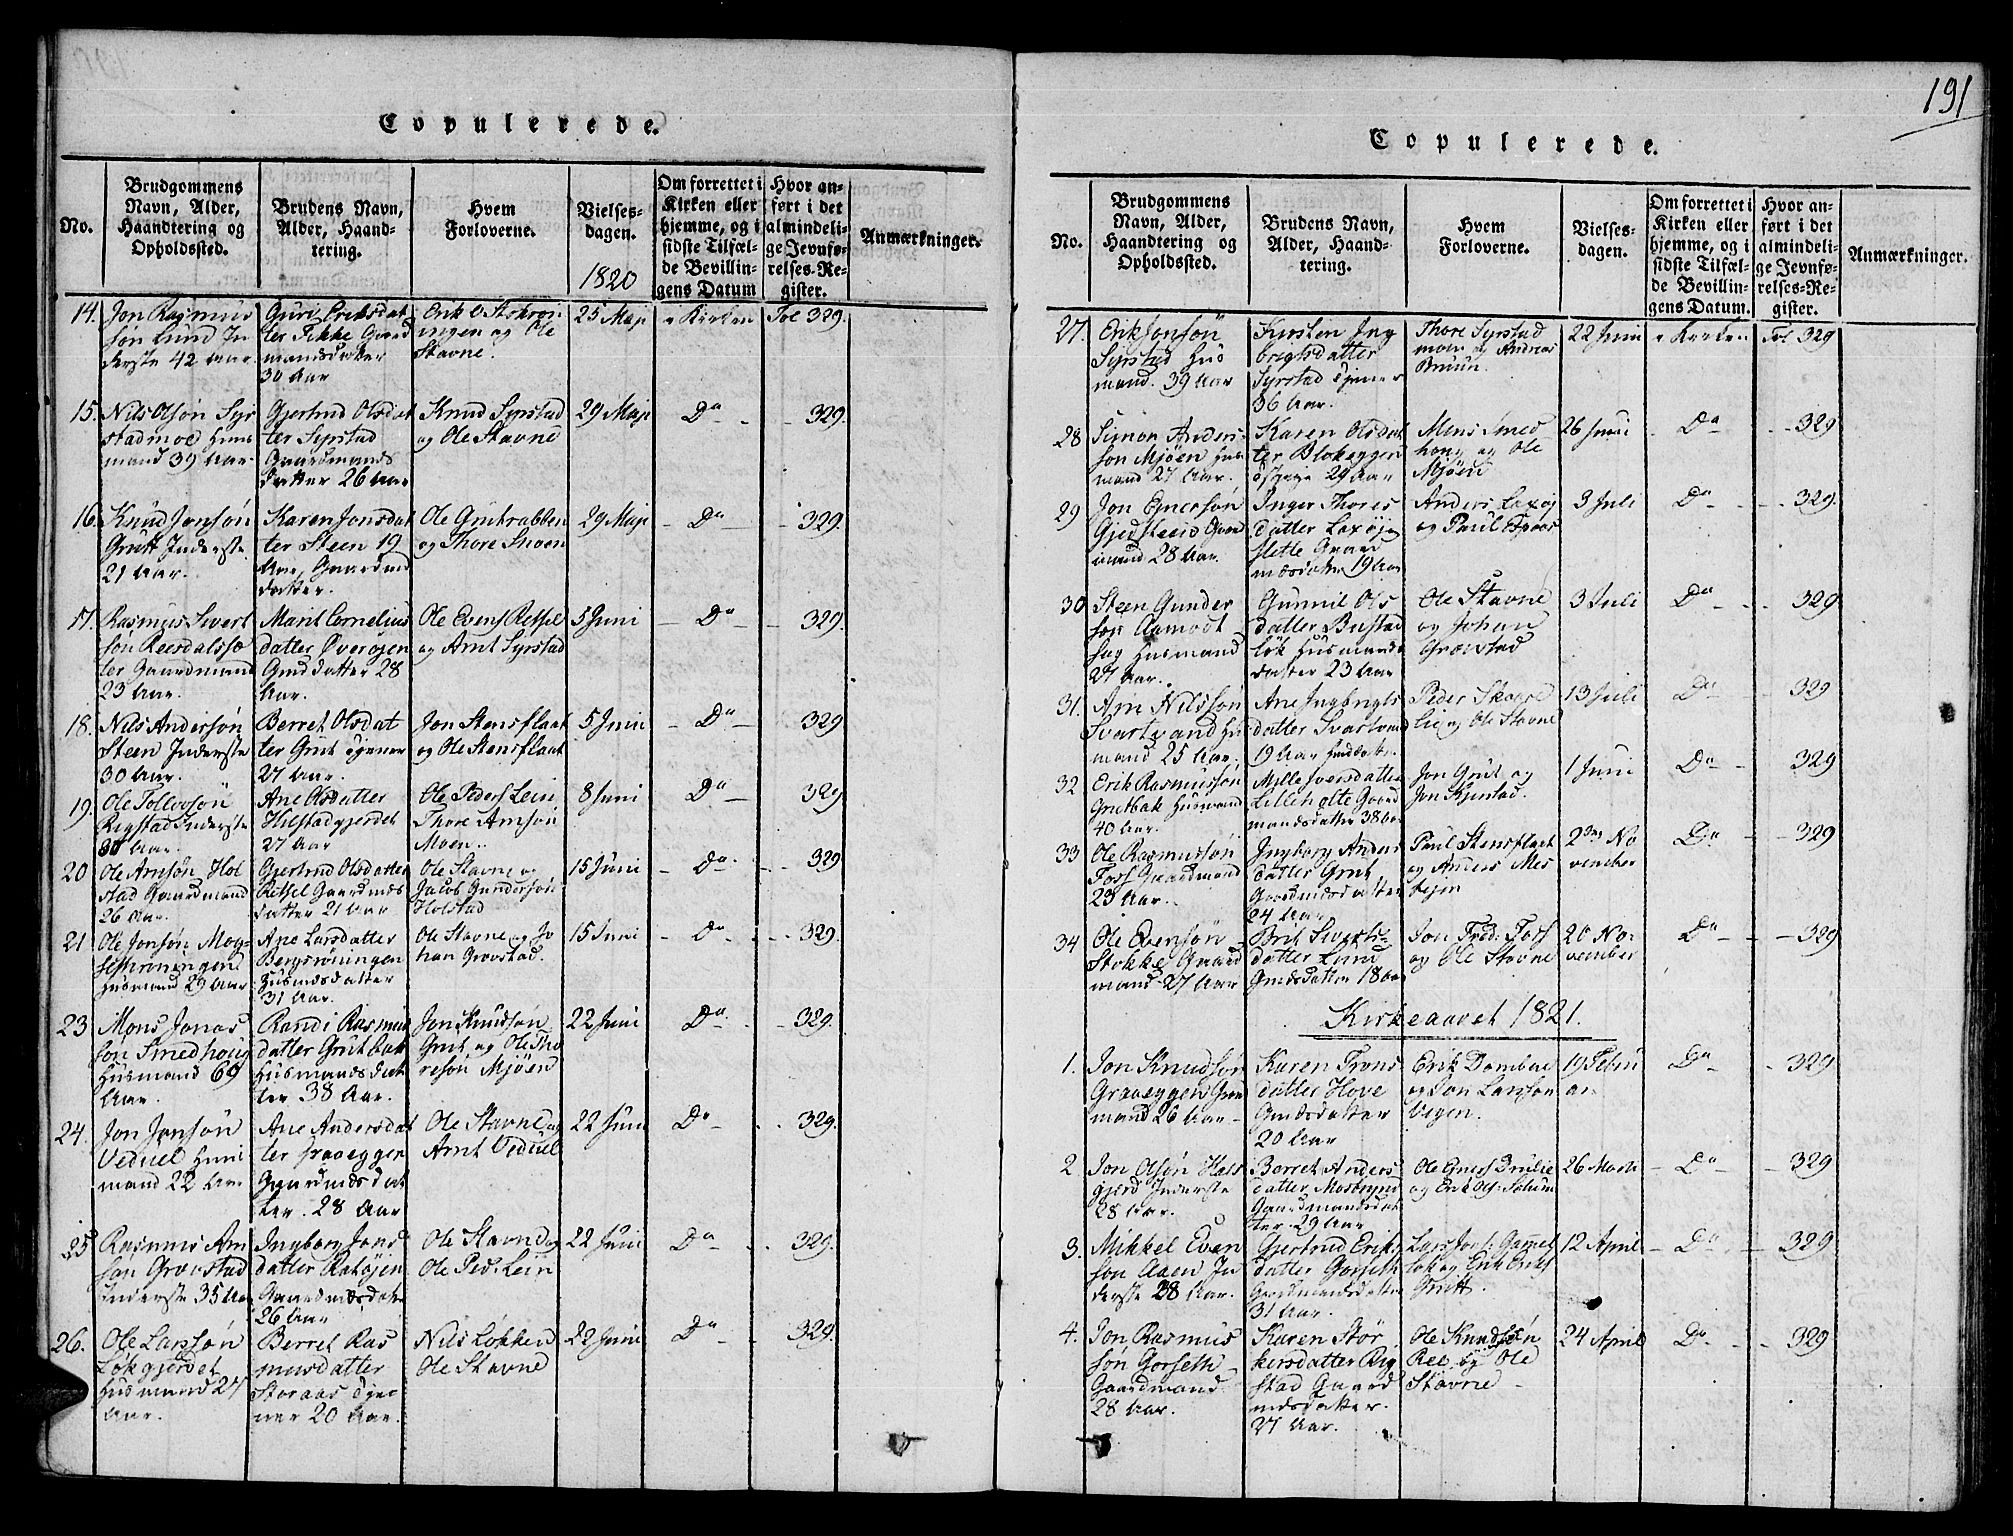 191
Copulerede.
No.
Brudgommens
Navn, Alder,
Haandtering og
Opholdssted.
Brudens Navn,
Alder, Haand-
tering.
Hvem
Forloverne.
Vielses-
dagen.
1820
Om forrettet i
Kirken eller
hjemme, og i
sidste Tilfæl-
de Bevillin-
gens Datum
Hvor an-
ført i det
almindeli-
ge Jevnfø-
relses-Re-
gister.
Anmærkninger.
14.
Jon Rasmus
søn Lund In
derste 42 Aar.
Guri Eriksdat
ter Fikke Gaard
mandsdatter
30 Aar
Stavne.
25 Maji
i Kirken
Fol 329.
15.
Nils Olsøn Syr
stadmoe Huus
mand 39 Aar.
Gjertrud Olsdat
ter Syrstad
Gaardmands
datter 26 Aar
Knud Syrstad
og Ole Stavne
29 Maji
Do
329.
16.
Knud Jonsøn
Grutt Inderste
21 Aar.
Karen Jonsdat
ter Steen 19
Aar, Gaardmd
datter.
Ole Grutrabben
og Thore Snoen
29 Maji
Do
329.
17.
Rasmus Sivert
søn Reesdalssæ
ter Gaardmand
23 Aar.
Marit Cornelius
datter Øverøien
Gmdsdatter 28
Aar.
Ole Evens Retsel
og Arnt Syrstad
5 Juni
Do
329.
18.
Nils Andersøn
Steen Inderste
30 Aar.
Berret Olsdat
ter Grut tjener
27 Aar.
Jon Stensflaat
og Ole Stensflaat
5 Juni
Do
329
19.
Ole Tollevsøn
Rigstad Inderste
30 Aar.
Ane Olsdatter
Hilstadgjerdet
27 Aar
Ole Peders Lein
Thore Arnsøn
Moen.
8 Juni
Do
329
20
Ole Arnsøn Hol
stad Gaardmand
26 Aar.
Gjertrud Olsdatter
Retsel Gaardmds
datter 21 Aar
Ole Stavne og
Jacob Gundersøn
Holstad
15 Juni
Do.
329
21
Ole Jonsøn Mog-
Husmand 29 Aar
Ane Larsdatter
Bergsrøningen
Husmdsdatter
31 Aar.
Ole Stavne og Jo
han Grovstad.
15 Juni
Do
329.
23
Mons Jonas
søn Smedhoug
Husmand 69
Aar.
Randi Rasmus
datter Grutbak
Husmandsdat
ter 38 Aar.
Jon Knudsøn
Grut og Ole Tho
resøn Mjøen
22 Juni
Do.
329.
24.
Jon Jonsøn
Veduel Huus
mand 22 Aar
Ane Andersdat
ter Graaeggen
Gaardmdsdat
ter. 28 Aar
Ole Stavne og
Arnt Veduel
22 Juni
Do
329.
25
Rasmus Arn
søn Grovstad
Inderste 35 Aar
Ingborg Jons
datter Ratøjen
Gaardmdsdatr
26 Aar
Ole Stavne og
Ole Ped: Lein
22 Juni
Do
329.
26.
Ole Larssøn
Løkgjerdet
Husmand 27
Aar.
Berret Ras
musdatter
Storaas tje
ner 20 Aar.
Nils Løkken
Ole Stavne
22 Juni
Do
329.
Copulerede.
No.
Brudgommens
Navn, Alder,
Haandtering og
Opholdssted.
Brudens Navn,
Alder, Haand-
tering.
Hvem
Forloverne.
Vielses-
dagen.
Om forrettet i
Kirken eller
hjemme, og i
sidste Tilfæl-
de Bevillin-
gens Datum.
Hvor an-
ført i det
almindeli-
ge Jevnfø-
relses-Re-
gister.
Anmærkninger.
27.
Erik Jonsøn
Syrstad Hus
mand. 39 Aar
Kirsten Ing
brigtsdatter
Syrstad tjener
36 Aar.
Thore Syrstad
moe og Andreas
Bruun.
22 Juni
i Kirken
Fol 329
28
Simon Anders-
søn Mjøen Hus
mand 27 Aar.
Karen Olsdat
ter Blokeggen
29 Aar
Mons Smed
houg og Ole
Mjøen
26 Juni
Do
329
29
Jon Ejnersøn
mand 28 Aar.
Inger Thores
datter Laxøj
slette Gaard
mdsdatter 19 Aar
Anders Laxøj
og Paul
3 Juli
Do
329.
30
Steen Gunder
søn Aamodt
Husmand
27 Aar.
Gunnil Ols
datter Bustad
løk Husmands
datter 23 Aar
Ole Stavne
og Johan
Grovstad
3 Juli
Do
329
31.
Arn Nilssøn
Svartvand Hu
mand 25 Aar.
Ane Ingbrigts
datter Svartvand
19 Aar
Peder
lie og Ole Stavne
13 Juli
Do
329
32
Erik Rasmussøn
Grutbak Husmand
40 Aar.
Mille Iversdatter
Lilleholte Gaard
mandsdatter 38 Aar
Jon Grut og
Jon
1 Juni
Do
329
33
Ole Rasmussøn
Foss Gaardmand
23 Aar.
Ingborg Anders
datter Grut
Gaardmdsdatter
24 Aar
Paul Stensflaat
og Anders Mes
2den No
vember
Do
329
34
Ole Evensøn
Stokke Gaard
mand 27 Aar
Brit Siverts-
datter Lund
Gmdsdatter 18 Aar
Jon Fred: Foss
og Ole Stavne
20 No-
vember
Do
329
Kirkeaaret 1821.
1.
Jon Knudsøn
Graaeggen Gaar
mand 26 Aar
Karen Trons
datter Hove
Gmdsdatter
20 Aar
Erik Dombue
og Jon Larssøn
Vegen.
19 Febru
ar
Do
329
2
Jon Olsøn Hals
gjerd Inderste
28 Aar.
Berret Anders
datter
Gaardmandsdat
ter. 29 Aar
26 Marti
Do
329
3.
Mikkel Even
søn Aaen In
derste 28 Aar.
Gjertrud Eriks
datter Gorseth
Gardmandsdatter
31 Aar.
Grutt.
12 April
Do
329
4.
Jon Rasmus
søn Gorseth
Gaardmand
28 Aar.
Karen Stør
kersdatter Rig
stad Gaard
mdsdatter.
27 Aar.
Ole Knudsøn
Ree og Ole
Stavne
24 April
Do
329